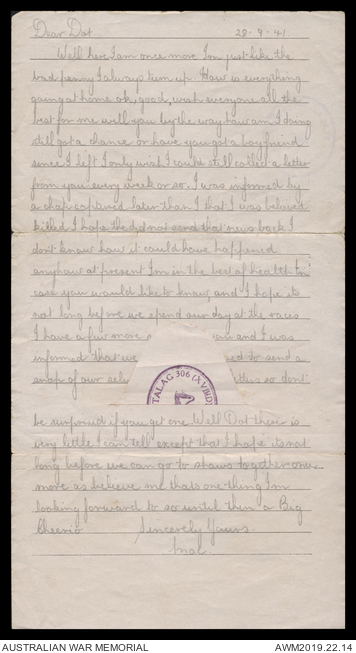 Dear Dot 28-9-41
Well here I am once more I'm just like the
bad penny I always turn up. How is everything
going at home ok, good, wish everyone all the
best for me well you by the way how am I doing
still got a chance or have you got a boyfriend
since I left I only wish I could still collect a letter
from you every week or so. I was informed by
a chap captured later than I that I was believed
killed I hope they did not send that news back I
don't know how it could have happened
anyhow at present I'm in the best of health in
case you would like to know, and I hope its
not long before we spend our day at the races
I have a few more and I was
informed that we to send a
snap of our so don't
STALAG 306 (XVIIID)
be surprised if you get one Well Dot there is
very little I can tell except that I hope its not
long before we can go to shows together once
more as believe me thats one thing I'm
looking forward to so until then a Big
Cheerio Sincerely Yours
Mal
AUSTRALIAN WAR MEMORIAL AWM2019.22.14